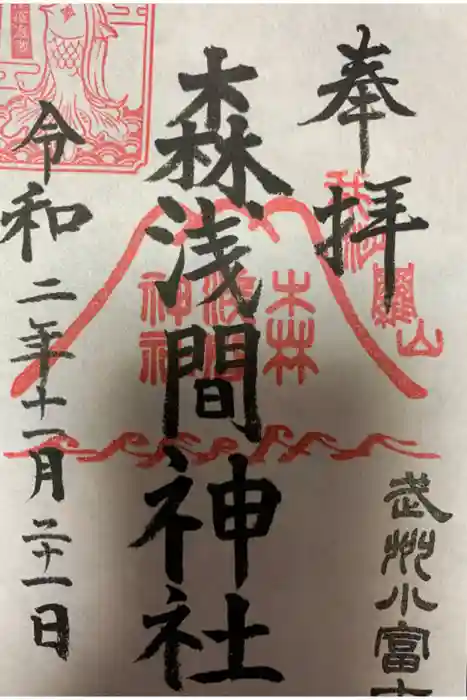 奉拝
武州小富士
森浅間神社
令和二年十一月二十一日
森浅間神社